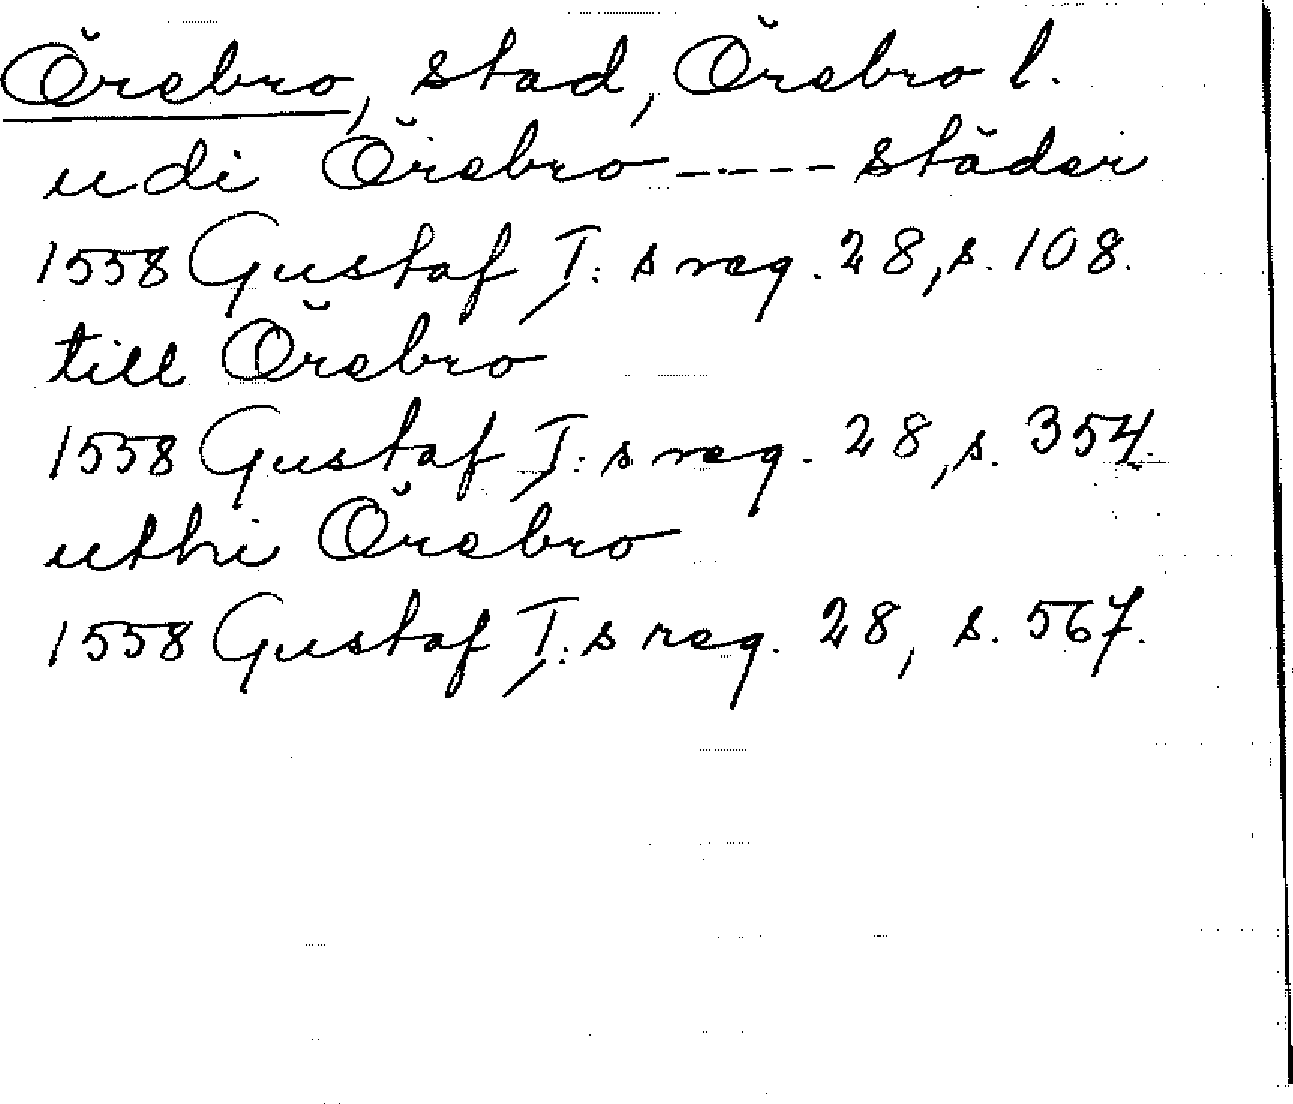 Örebro, stad, Örebro l.
udi Örebro ----- städer
1558 Gustaf I:s reg. 28, s. 108.
till Örebro
1558 Gustaf I:s reg. 28, s. 354.
uthi Örebro
1558 Gustaf I:s reg. 28, s. 567.